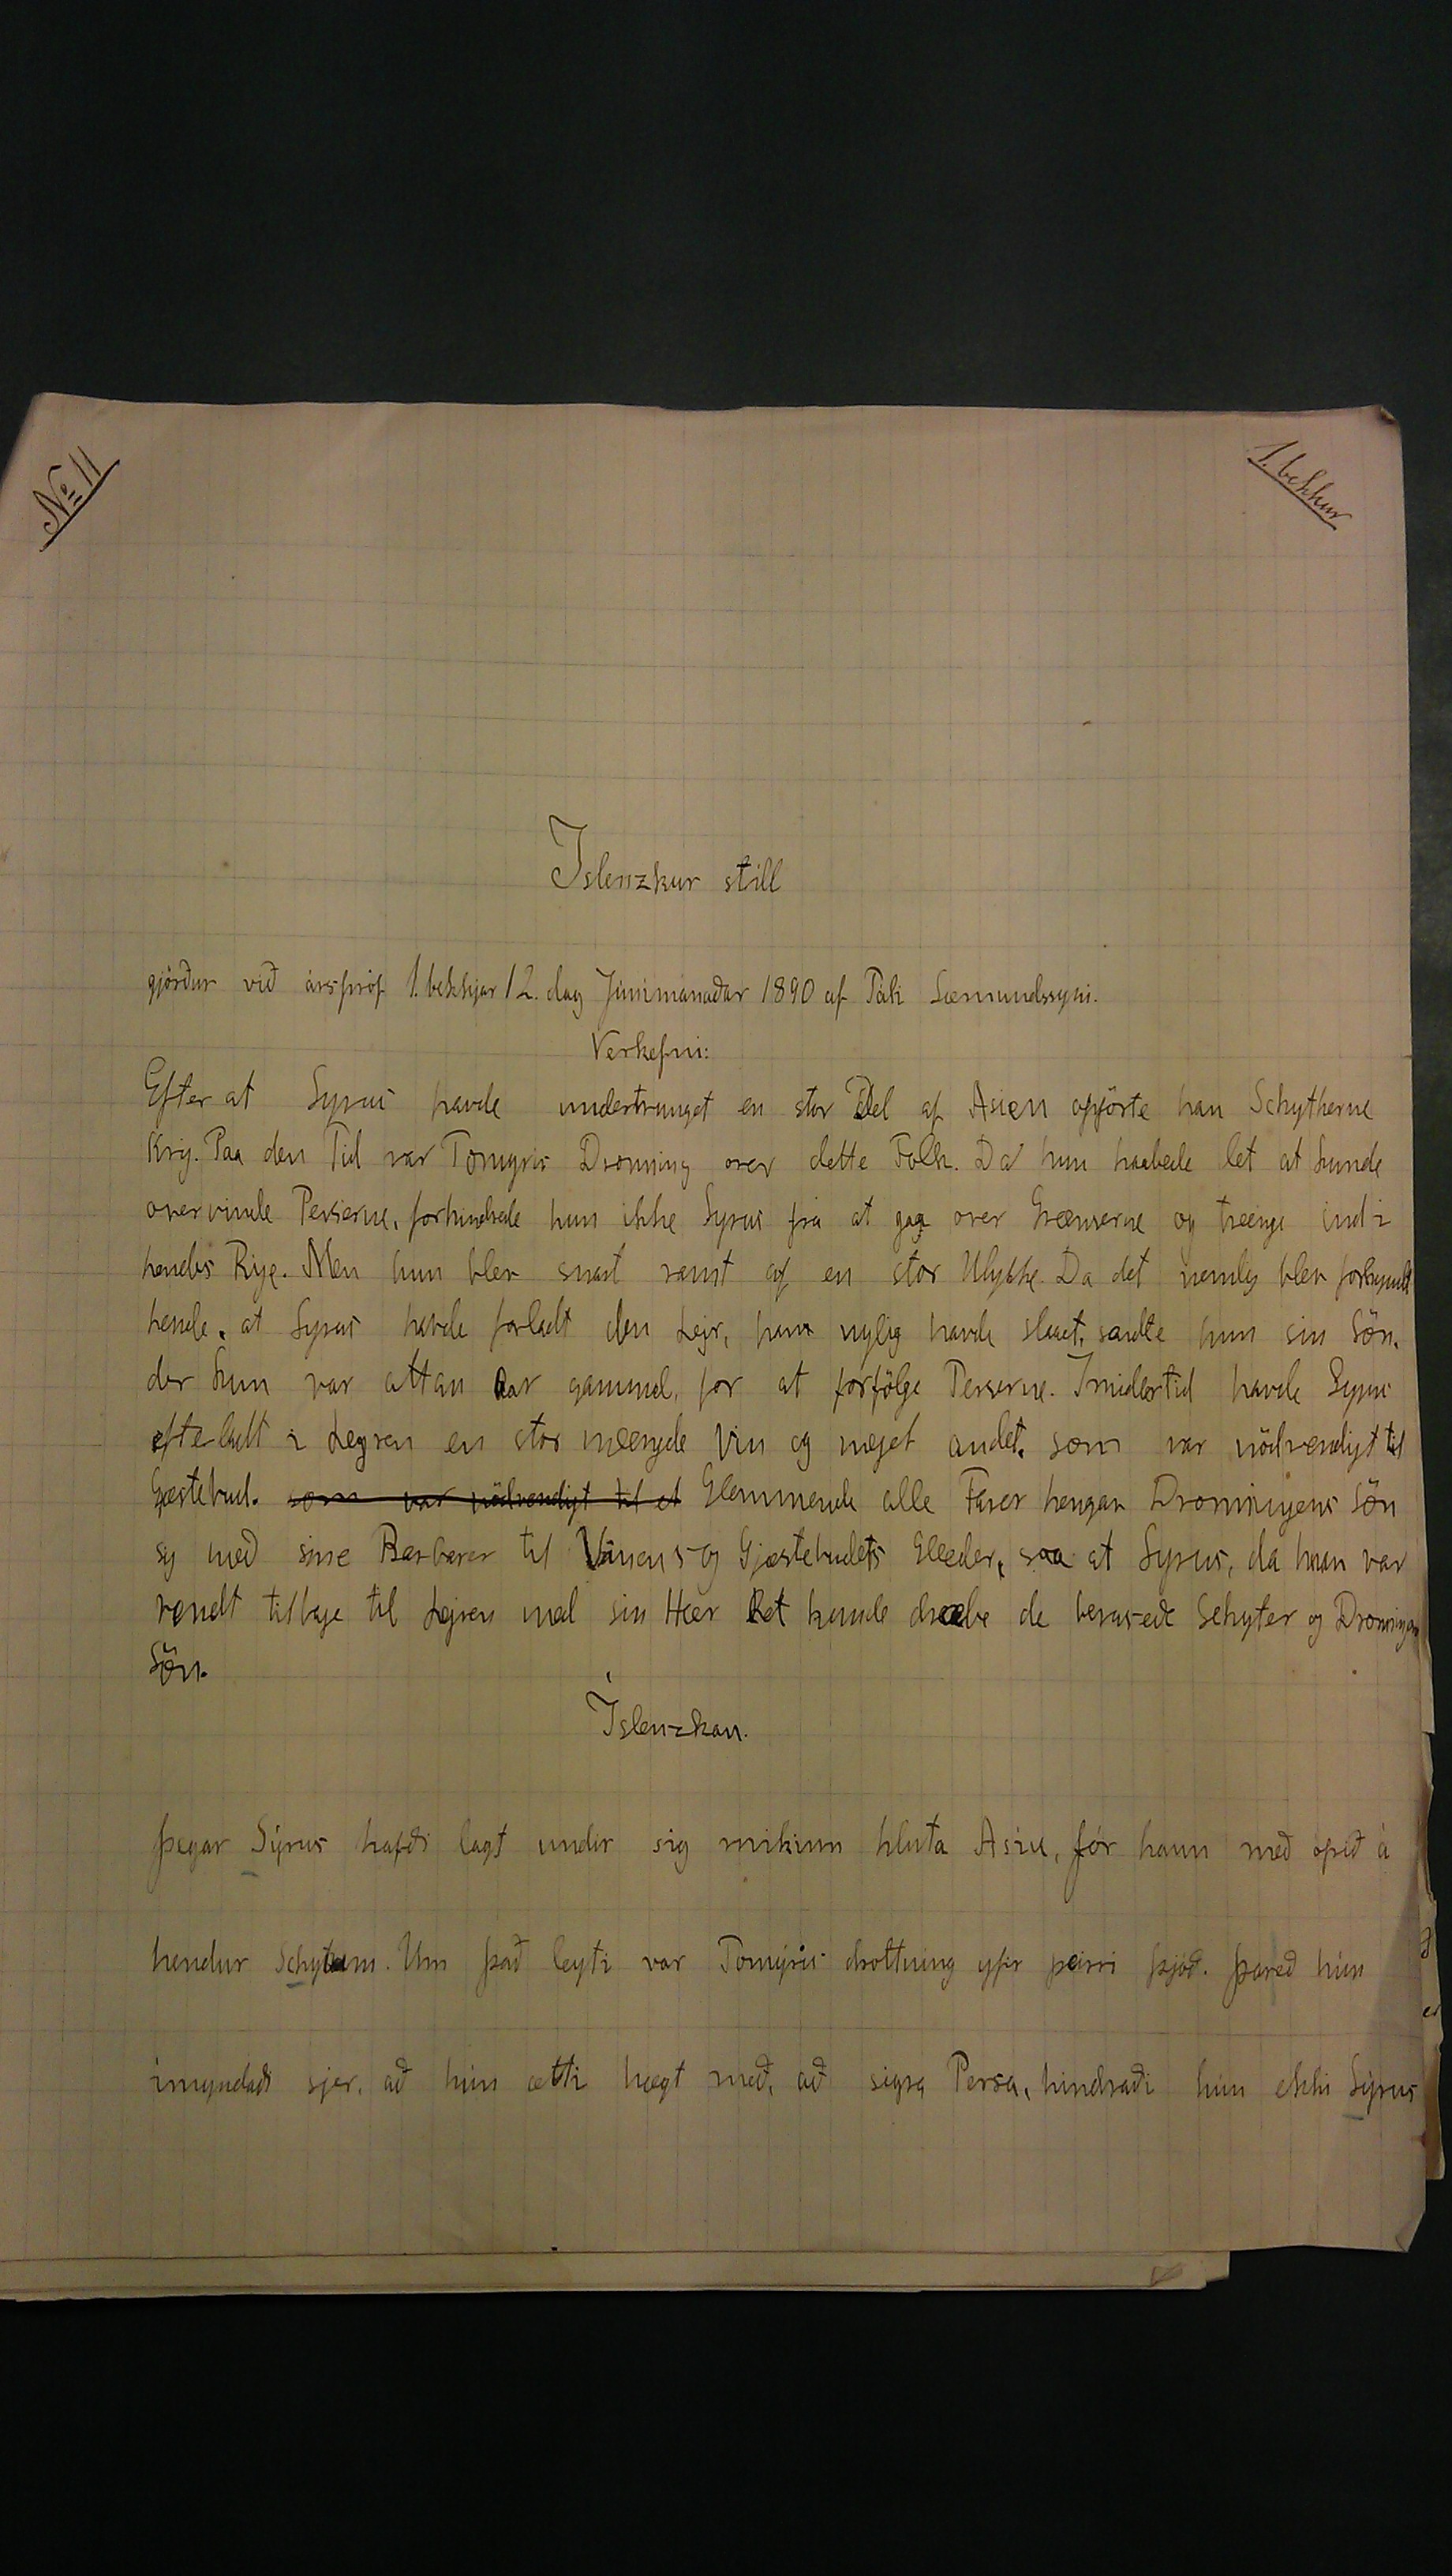 № 11
1. bekkur
Islenzkur still
gjörður við árspróf 1. bekkjar 12. dag Júnímánaðar 1890 af Páli Sæmundssyni.
Verkefni:
Efter at Syrus havde undertvunget en stor Del af Asien opförte han Schytherne
Krig. Paa den Tid var Tomyris Dronning over dette Folk. Da hun haabede let at kunde
overvinde Perserne, forhindrede hun ikke Syrus fra at gaa over Grænserne og trænge ind i
hendes Rige. Men hun blev snart ramt af en stor Ulykke. Da det nemlig blev forkyndt
hende, at Syrus havde forladt den Lejr, han nylig havde slaaet, sendte hun sin Sön,
der kun var attan Aar gammel, for at forfölge Perserne. Imidlertid havde Syrus
efterladt i Legren en stor mængde Vin og meget andet, som var nödvendigt til
Gæstebud. som var nödvendigt til et Glemmende alle Farer hengav Dronningens Sön
sig með sine Barbarer til Vinens og Gjæstebudets Glæder, saa at Syrus, da han var
vendt tilbage til Lejren med sin Hær let kunde dræbe de berusede Schyter og Dronningens
Sön.
Íslenzkan.
Þegar Sýrus hafði lagt undir sig mikinn hluta Asíu, fór hann með ófrið á
hendur Schytum. Um það leyti var Tomýris drottning yfir þeirri þjóð. Þareð hún
ímyndaði sjer, að hún ætti hægt með, að sigra Persa, hindraði hún ekki Sýrus